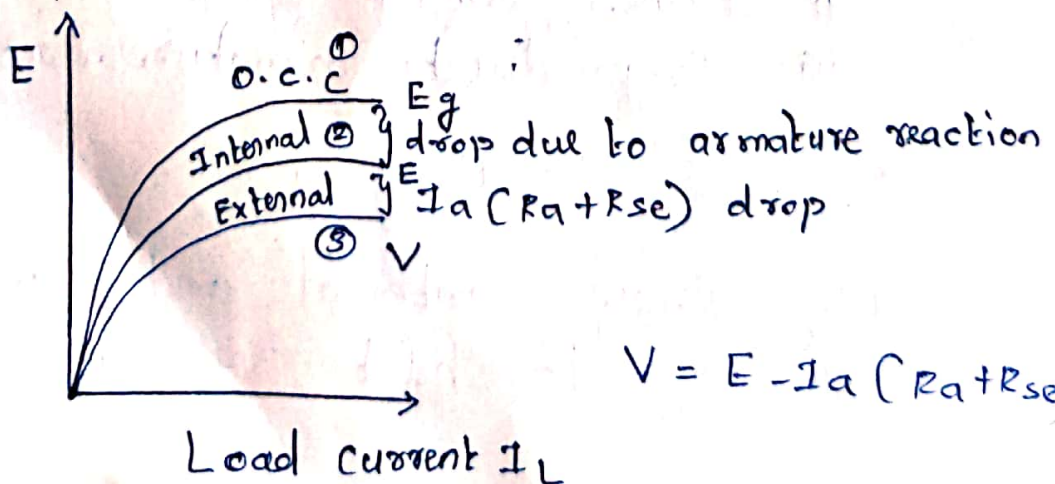 E
①
O.C.C
Eg
Internal ② } drop due to armature reaction
E
External } Ia (Ra+Rse) drop
③ V
V = E - Ia (Ra+Rse
Load current IL